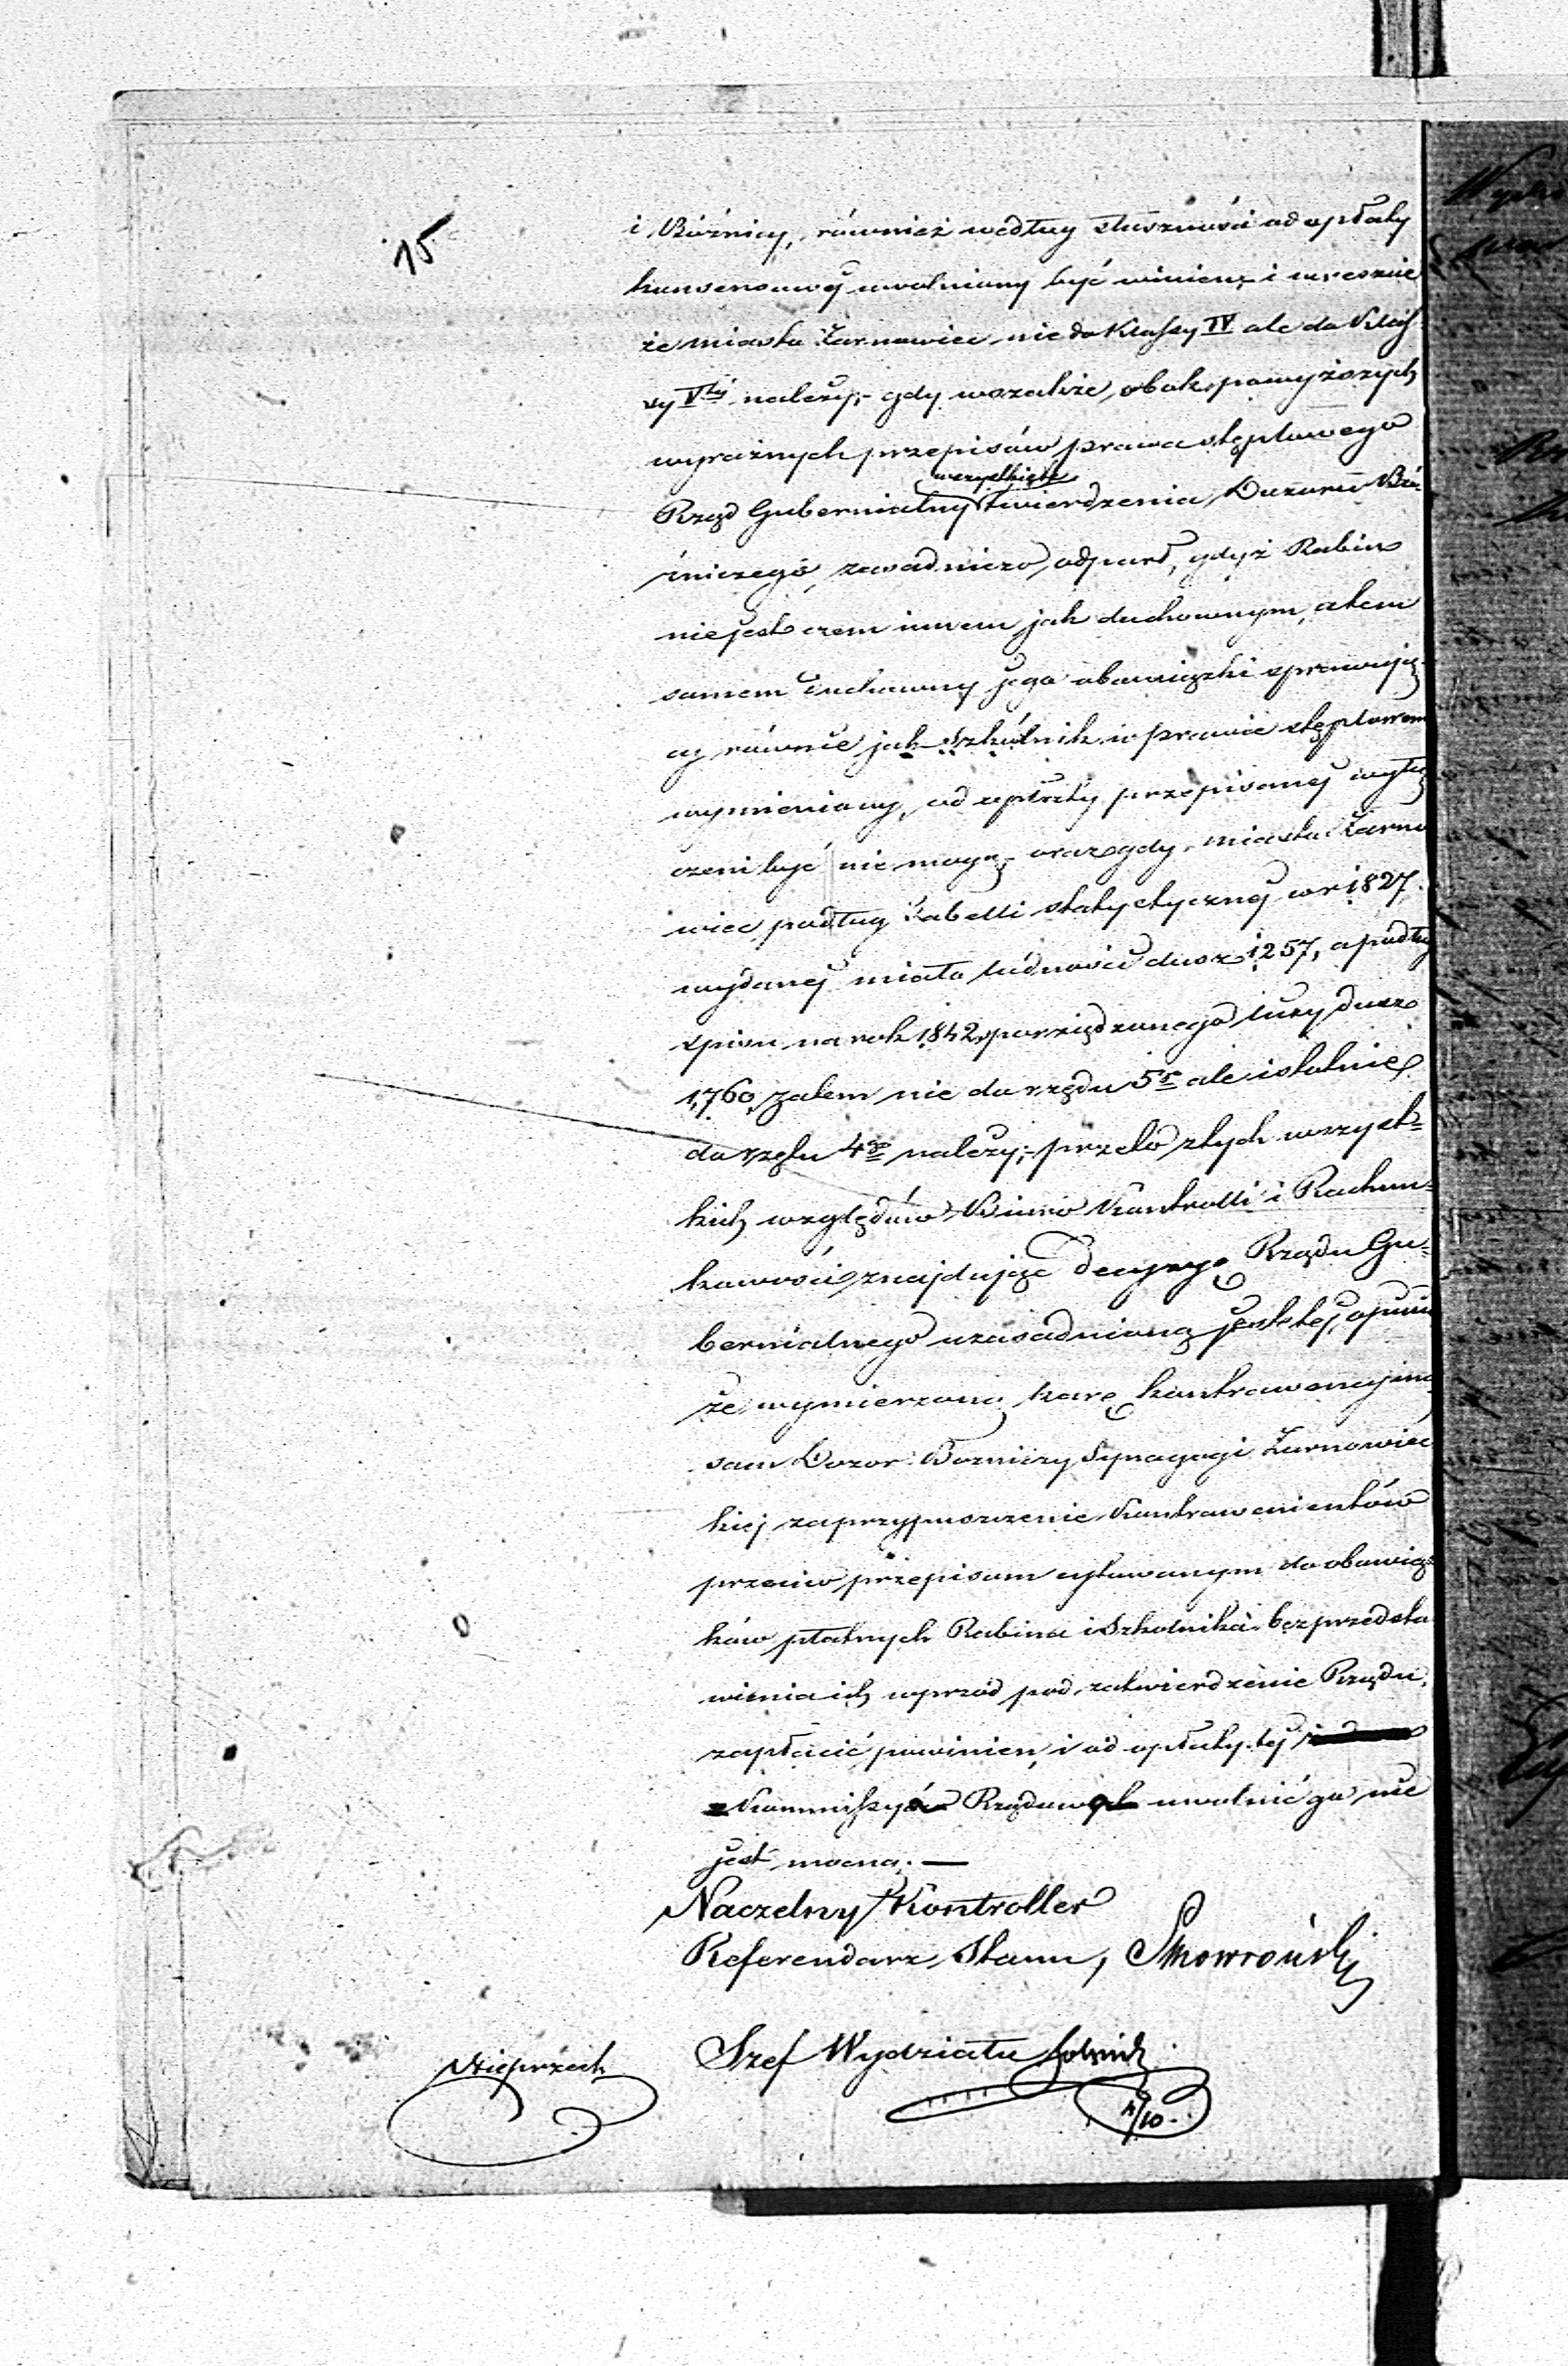 15
i Bóźnicy, również według słuszności od opłaty
konsensowej uwolniony być winien, i wreszcie
że miasto Żarnowiec nie do Klassy IV ale do Klas-
sy Vtej należy;- gdy wszakże, obok powyższych
wyraźnych przepisów prawa stęplowego
wszystkie
Rząd Gubernialny twierdzenia Dozoru Bó-
źniczego, zasadniczo odparł, gdyż Rabin
nie jest czem innem jak duchownym, a tem
samem duchowny jego obowiązki sprawują-
cy, równie jak Szkólnik w prawie stęplowem
wymieniony, od opłaty przepisanej wyłą
czeni być nie mogą, oraz gdy miasto Żarno
wiec podług Tabelli statystycznej w r. 1827.
wydanej miało ludności dusz 1257, a podług
spisu na rok 1842 sporządzonego liczy dusz
1,760, zatem nie do rzędu 5go ale istotnie
do rzędu 4go należy;- przeto z tych wszyst-
kich względów Biuro Kontrolli i Rachun-
kowości, znajdując decyzyę Rządu Gu-
bernialnego uzasadnioną jest tej opinii
że wymierzoną karę kontrawencyjną
sam Dozor Bozniczy Synagogi Żarnowiec
kiej za przypuszczenie Kontrawenientów
przeciw przepisom cytowanym do obowiąz-
ków płatnych Rabina i Szkolnika bez przedsta
wienia ich wprzód pod zatwierdzenie Rządu,
zapłacić powinien, i od opłaty tej
Kommissya Rządowa uwolnić go nie
jest mocna. —
Naczelny Kontroller
Referendarz Stanu,
Szef Wydziału
Wieprzech
4/10